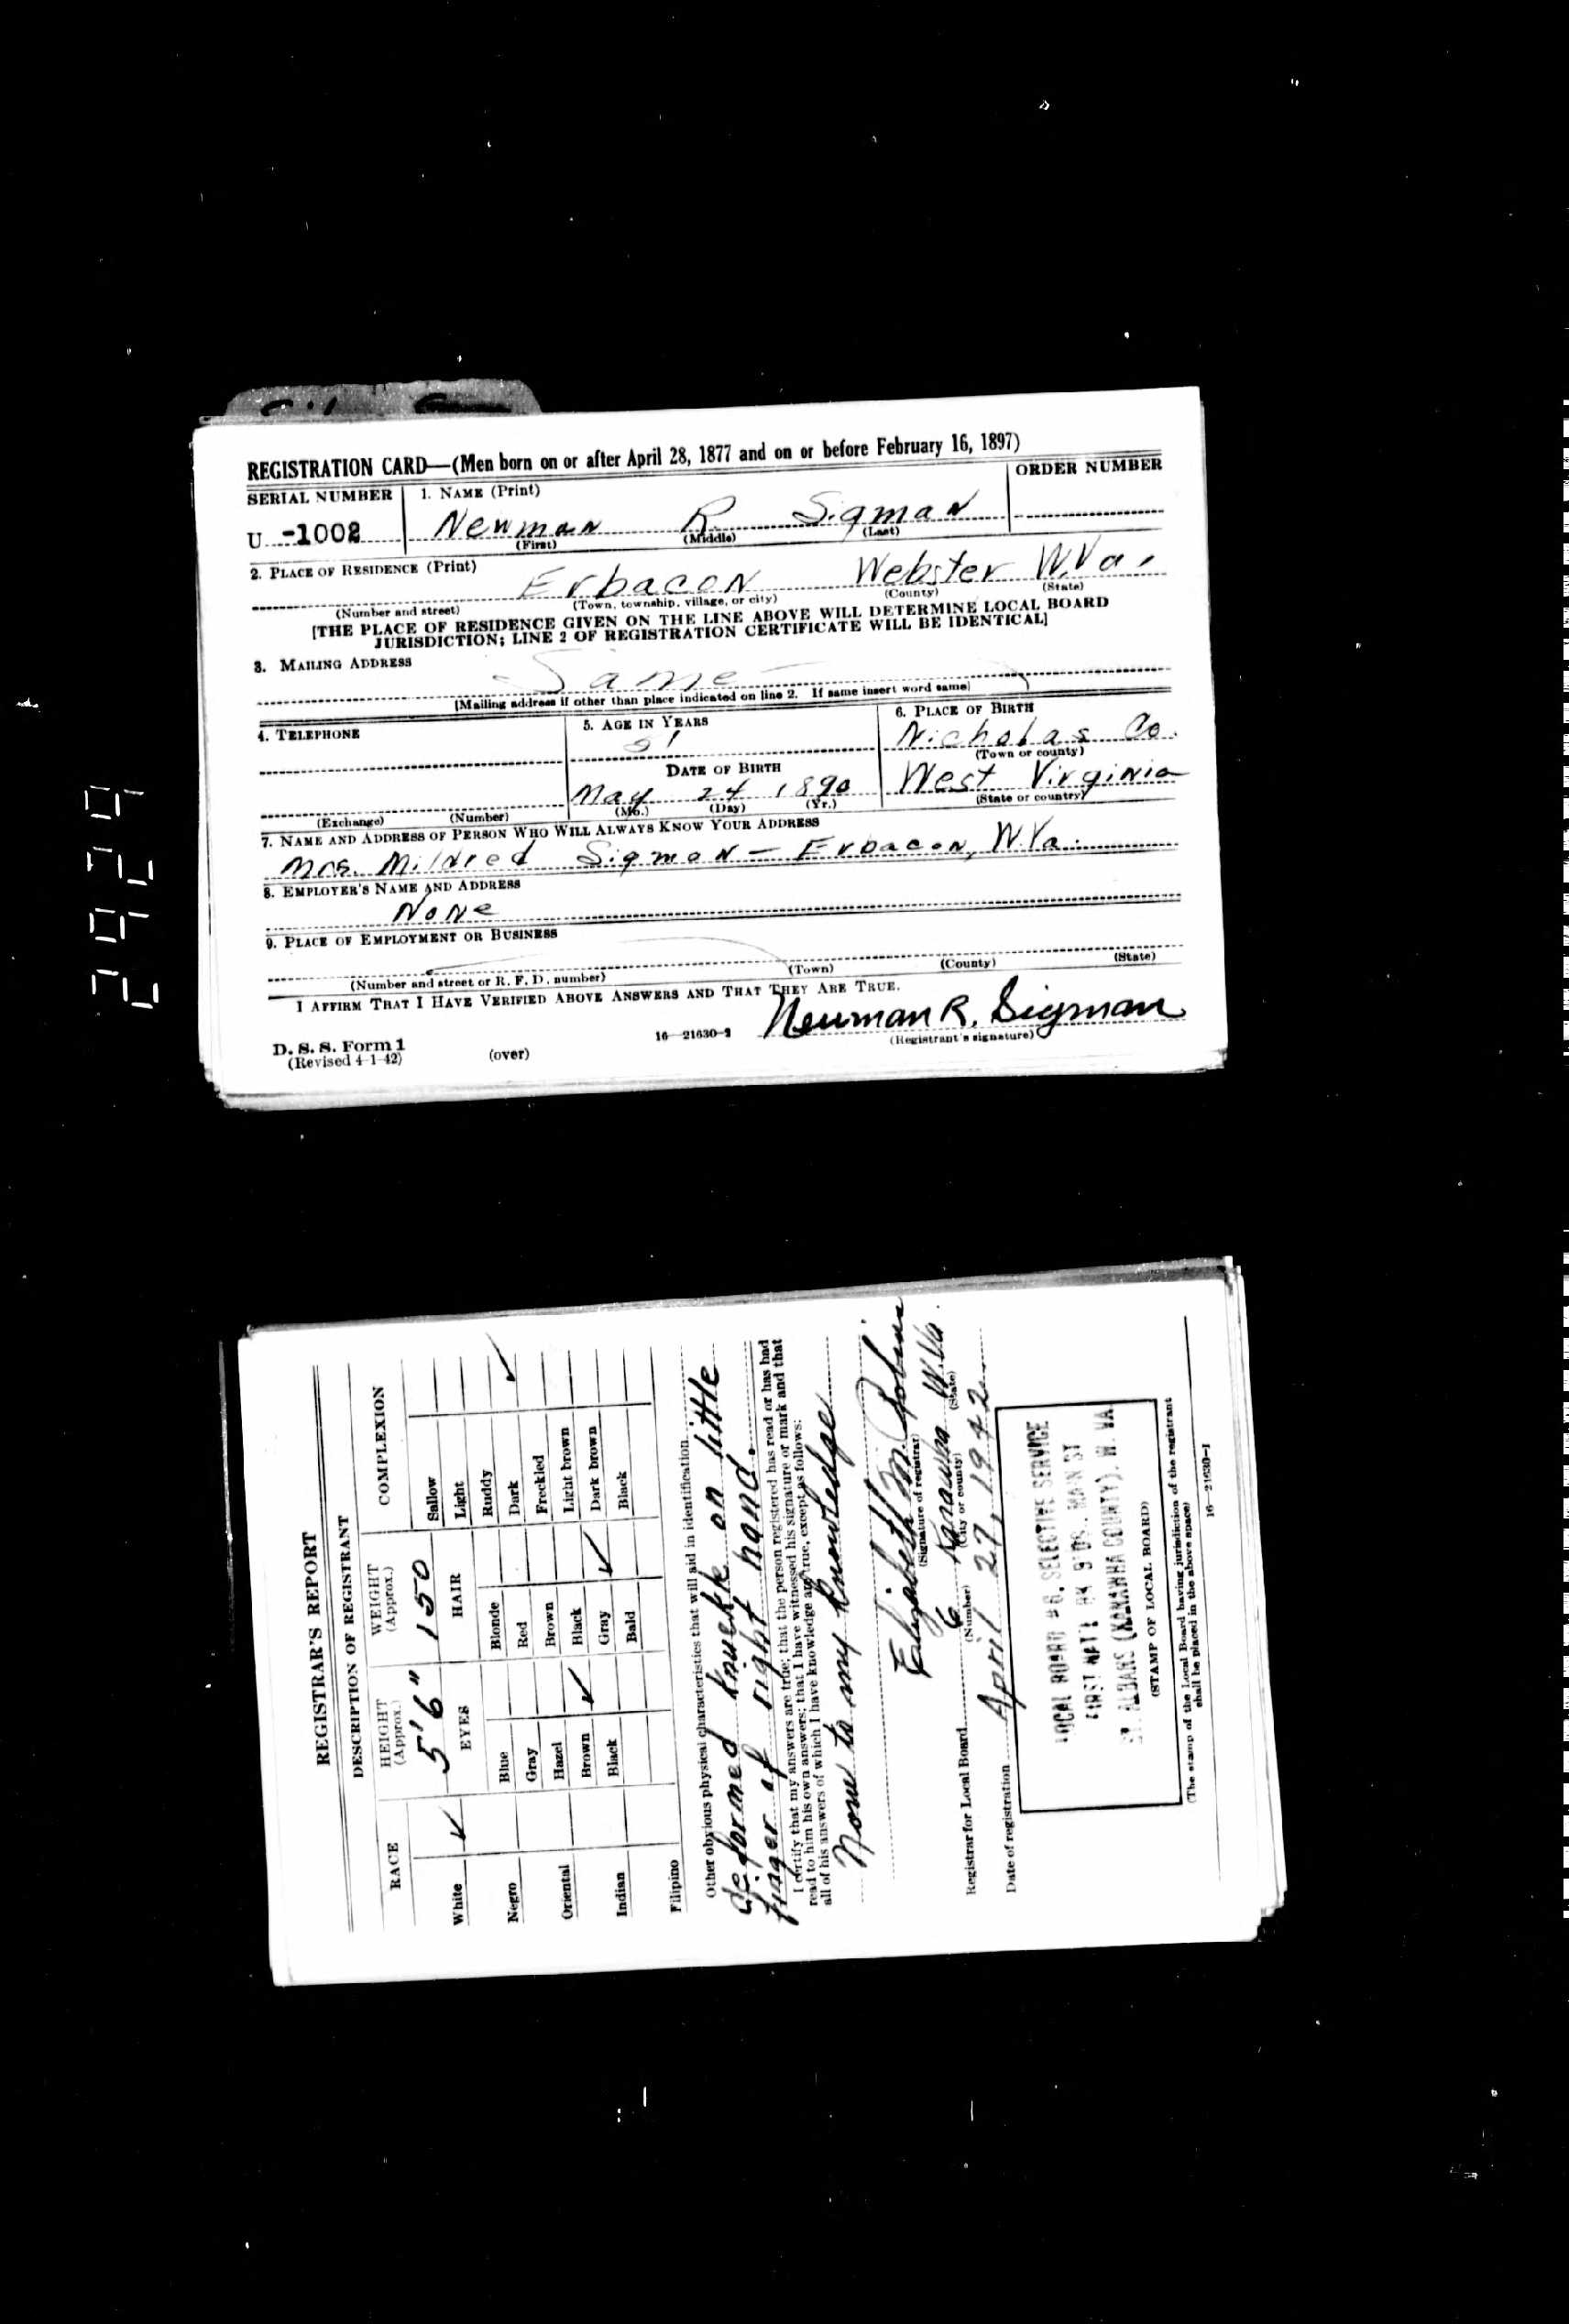 REGISTRATION CARD—(Men born on or after April 28, 1877 and on or before February 16, 1897)
SERIAL NUMBER 1. NAME (Print) ORDER NUMBER
U -1002 Newman R Sigman
(First) (Middle) (Last)
2. PLACE OF RESIDENCE (Print)
Erbacon Webster W.Va.
(Number and street) (Town, township, village, or city) (County) (State)
[THE PLACE OF RESIDENCE GIVEN ON THE LINE ABOVE WILL DETERMINE LOCAL BOARD
JURISDICTION; LINE 2 OF REGISTRATION CERTIFICATE WILL BE IDENTICAL]
3. MAILING ADDRESS
Same
[Mailing address if other than place indicated on line 2. If same insert word same]
4. TELEPHONE 5. AGE IN YEARS 6. PLACE OF BIRTH
51 Nicholas Co.
(Town or county)
DATE OF BIRTH
May 24 1890 West Virginia
(Exchange) (Number) (Mo.) (Day) (Yr.) (State or country)
7. NAME AND ADDRESS OF PERSON WHO WILL ALWAYS KNOW YOUR ADDRESS
Mrs. Mildred Sigman — Erbacon, W.Va.
8. EMPLOYER'S NAME AND ADDRESS
None
9. PLACE OF EMPLOYMENT OR BUSINESS
(Number and street or R. F. D. number) (Town) (County) (State)
I AFFIRM THAT I HAVE VERIFIED ABOVE ANSWERS AND THAT THEY ARE TRUE.
D. S. S. Form 1
(Revised 4-1-42) (over) 16—21630-2 Newman R. Sigman
(Registrant's signature)
29429
REGISTRAR'S REPORT
DESCRIPTION OF REGISTRANT
RACE HEIGHT (Approx.) WEIGHT (Approx.) COMPLEXION
5'6" 150 Sallow
White ✓ EYES HAIR Light
Blue Blonde Ruddy
Negro Gray Red Dark ✓
Hazel Brown Freckled
Oriental Brown ✓ Black Light brown
Black Gray ✓ Dark brown
Indian Bald Black
Filipino
Other obvious physical characteristics that will aid in identification
deformed knuckle on little
finger of right hand.
I certify that my answers are true; that the person registered has read or has had
read to him his own answers; that I have witnessed his signature or mark and that
all of his answers of which I have knowledge are true, except as follows:
None to my knowledge
Elizabeth M.
(Signature of registrar)
Registrar for Local Board 6 Kanawha W.Va.
(Number) (City or county) (State)
Date of registration April 27, 1942
LOCAL BOARD #6, SELECTIVE SERVICE
FIRST NAT'L BK B'DG., MAIN ST
ST. ALBANS (KANAWHA COUNTY), W. VA.
(STAMP OF LOCAL BOARD)
(The stamp of the Local Board having jurisdiction of the registrant
shall be placed in the above space)
16—21630-1